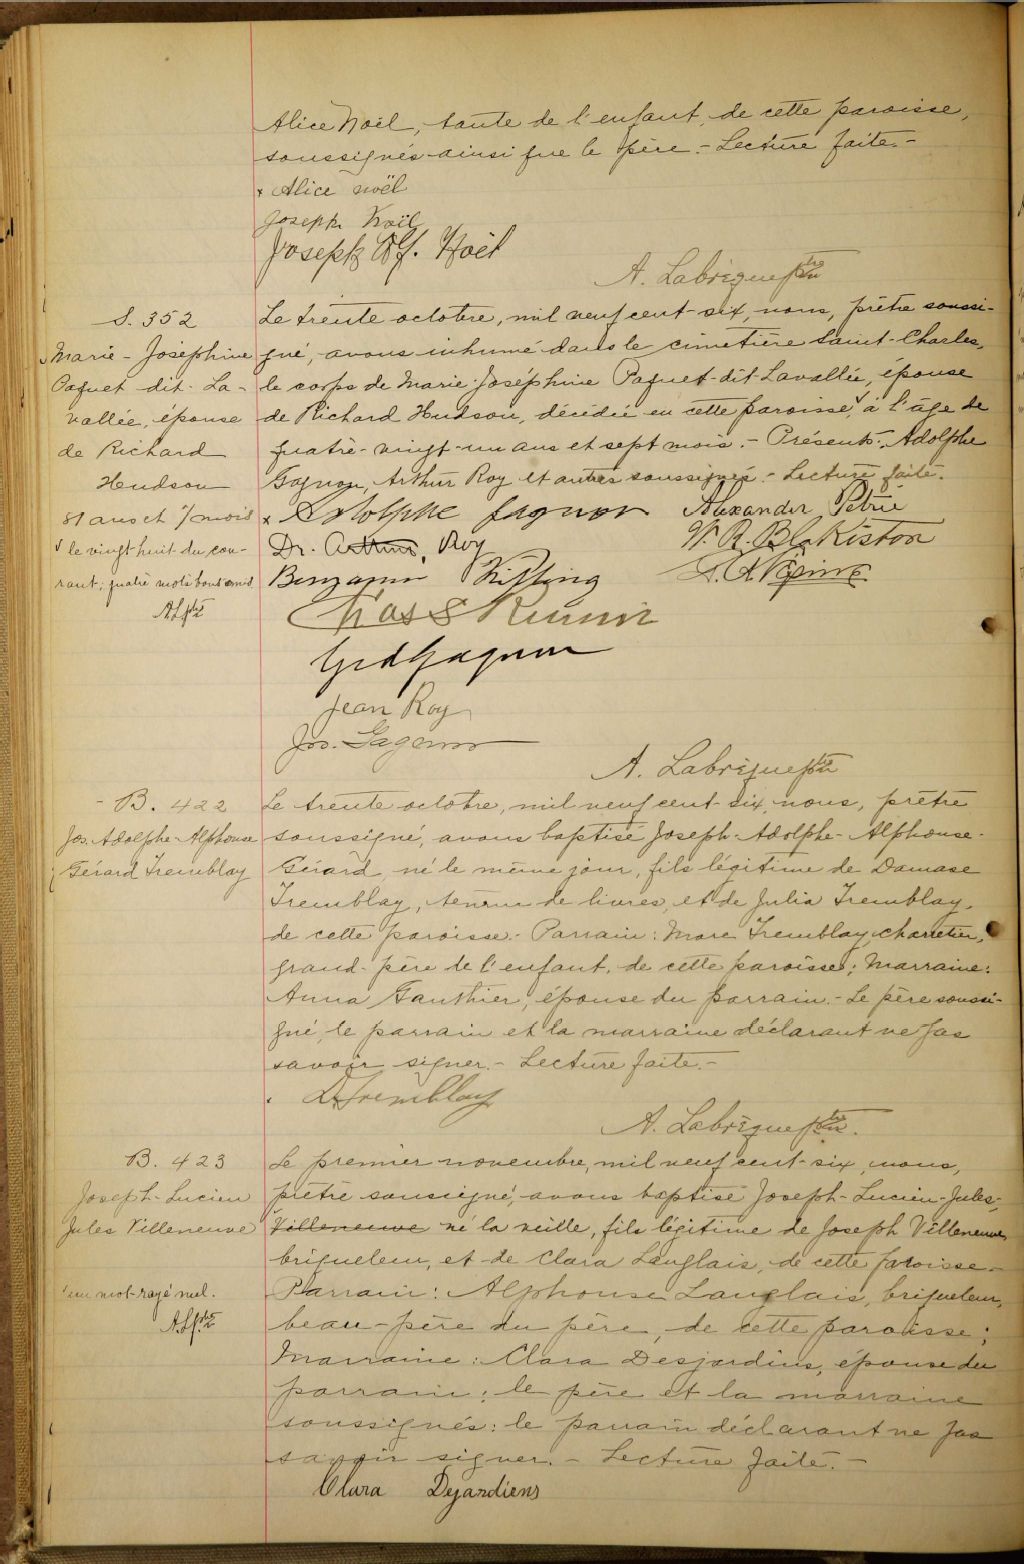 Alice Noël, tante de l'enfant, de cette paroisse,
soussignés ainsi que le père. - Lecture faite. -
x Alice Noël
Joseph Noël
Joseph Alf. Noël
A. Labrique ptre
S. 352
Marie-Joséphine
Paquet dit La-
vallée, épouse
de Richard
Hudson
81 ans et 7 mois
v le vingt-huit du cou-
rant; quatre mots bons omis
A.L. ptre
Le trente octobre, mil neuf cent-six, nous, prêtre soussi-
gné, avons inhumé dans le cimetière Saint-Charles,
le corps de Marie-Joséphine Paquet-dit-Lavallée, épouse
de Richard Hudson, décédée en cette paroisse v, à l'âge de
quatre-vingt-un ans et sept mois. - Présents: Adolphe
Gagnon, Arthur Roy et autres soussignés. - Lecture faite.
x Adolphe Gagnon
Alexander Petrie
Dr. Arthur Roy
W. R. Blakiston
Benjamin
Gagnon
Jean Roy
Jos. Gagnon
A. Labrique ptre
B. 422
Jos. Adolphe-Alphonse
Gérard Tremblay
Le trente octobre, mil neuf cent-six, nous, prêtre
soussigné, avons baptisé Joseph-Adolphe-Alphonse-
Gérard, né le même jour, fils légitime de Damase
Tremblay, teneur de livres, et de Julia Tremblay,
de cette paroisse. - Parrain: Marc Tremblay, charretier,
grand-père de l'enfant, de cette paroisse; Marraine:
Anna Gauthier, épouse du parrain. - Le père soussi-
gné, le parrain et la marraine déclarant ne pas
savoir signer. - Lecture faite. -
D. Tremblay
A. Labrique ptre.
B. 423
Joseph-Lucien
Jules Villeneuve
un mot rayé nul.
A.L. ptre
Le premier novembre, mil neuf cent-six, nous,
prêtre soussigné, avons baptisé Joseph-Lucien-Jules-
Villeneuve né la veille, fils légitime de Joseph Villeneuve,
briqueleur, et de Clara Langlais, de cette paroisse. -
Parrain: Alphonse Langlais, briqueleur,
beau-père du père, de cette paroisse;
Marraine: Clara Desjardins, épouse du
parrain; le père et la marraine
soussignés: le parrain déclarant ne pas
savoir signer. - Lecture faite. -
Clara Dejardiens